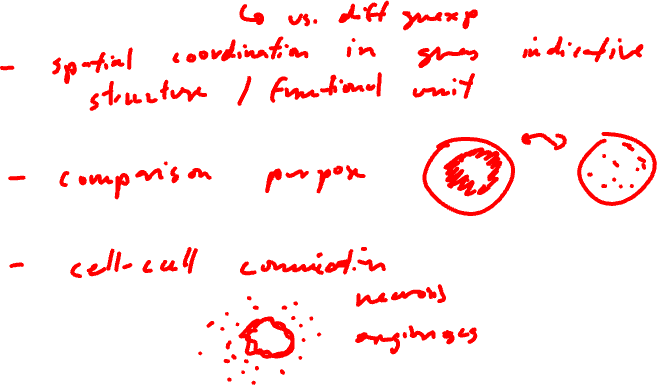 ↳ vs. diff gnexp
- spatial coordination in genes indicative
structure / functional unit
- comparison purpose
- cell-cell
necrosis